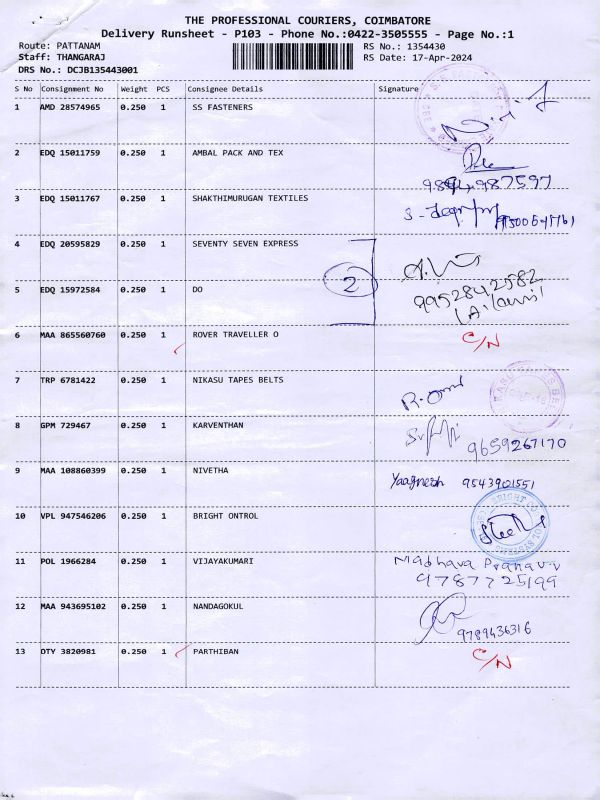 THE PROFESSIONAL COURIERS, COIMBATORE
Delivery Runsheet - P103 - Phone No.:0422-3505555 - Page No.:1
Route: PATTANAM RS No.: 1354430
Staff: THANGARAJ RS Date: 17-Apr-2024
DRS No.: DCJB135443001
S No Consignment No Weight PCS Consignee Details Signature
1 AMD 28574965 0.250 1 SS FASTENERS
2 EDQ 15011759 0.250 1 AMBAL PACK AND TEX
3 EDQ 15011767 0.250 1 SHAKTHIMURUGAN TEXTILES
4 EDQ 20595829 0.250 1 SEVENTY SEVEN EXPRESS
2
5 EDQ 15972584 0.250 1 DO 9952842582
6 MAA 865560760 0.250 1 ROVER TRAVELLER O C/N
7 TRP 6781422 0.250 1 NIKASU TAPES BELTS
8 GPM 729467 0.250 1 KARVENTHAN 9659267170
9 MAA 108860399 0.250 1 NIVETHA Yaagnesh 9543901551
10 VPL 947546206 0.250 1 BRIGHT ONTROL
11 POL 1966284 0.250 1 VIJAYAKUMARI Madhava Pranavv
9787725199
12 MAA 943695102 0.250 1 NANDAGOKUL
9789436316
13 OTY 3820981 0.250 1 PARTHIBAN C/N